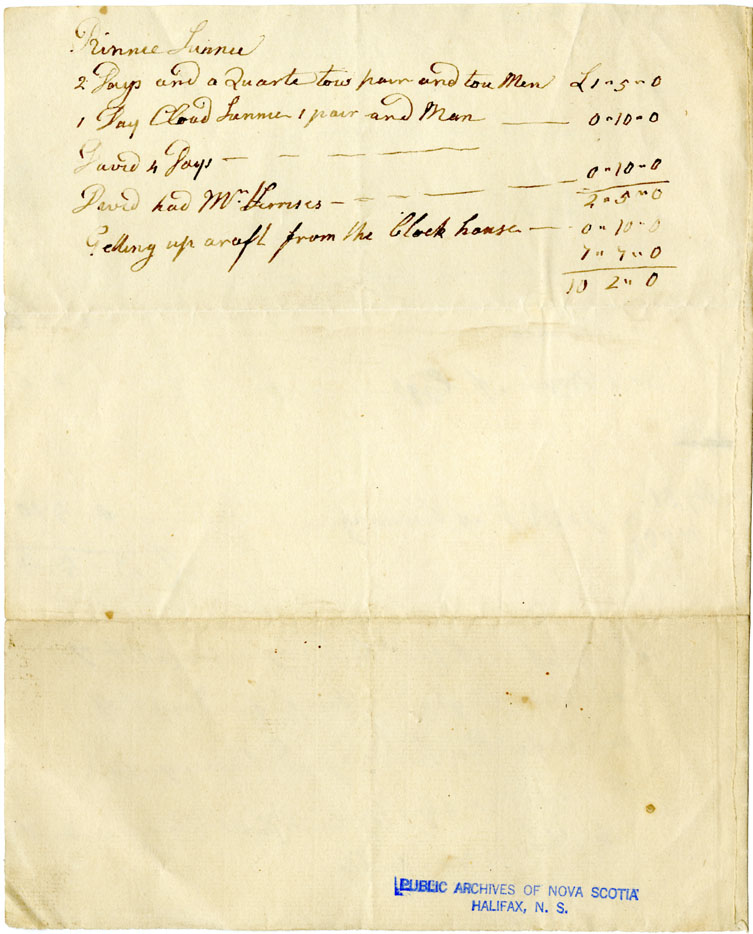 Pinnie Lunnie
2 Days and a Quarte tow pair and tou Men £1-5-0
1 Day Cloud Lunnie 1 pair and Man 0-10-0
David 4 Days 0-10-0
2-5-0
David had Mr 0-10-0
Getting up a raft from the Block house 7-7-0
10 2-0
PUBLIC ARCHIVES OF NOVA SCOTIA
HALIFAX, N. S.